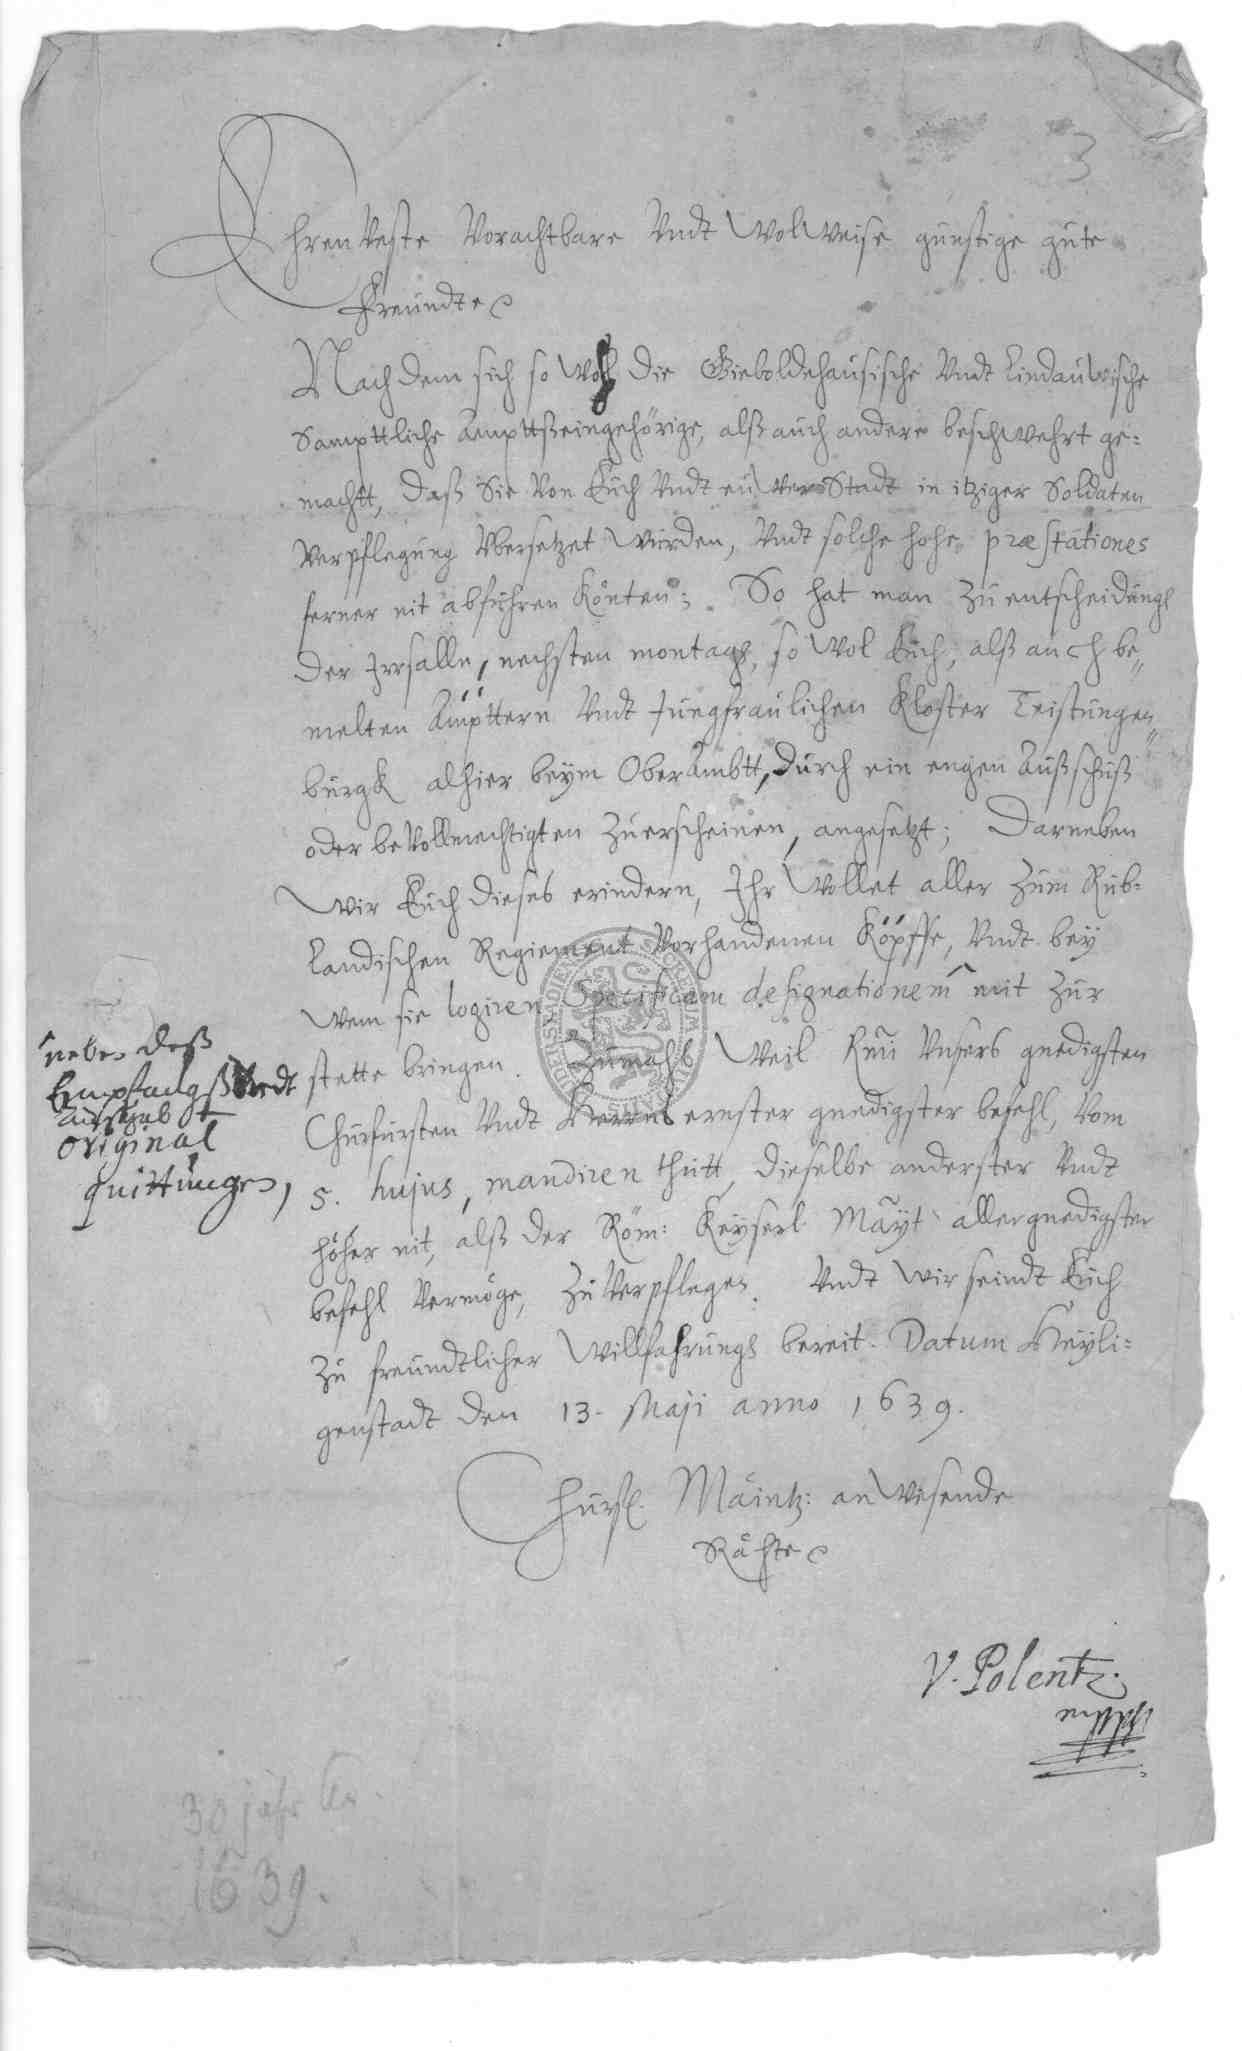 3
Ehrenveste Vorachtbare Vndt Wolweise günstige gute
Freundte
Nachdem sich so wohl die Gieboldehausische Vndt Lindauwische
Sampttliche Ampttßeingehörige, alß auch andere beschwehrt ge=
machtt, daß Sie Von Euch Vndt euwer Stadt in itziger Soldaten
Verpflegung Vbersetzet würden, Vndt solche hohe præstationes
ferner nit abführen könten; So hat man zu entscheidungh
der Irrsalln, nechsten montagh, so wol Euch, alß auch be„
melten Ämpttern Vndt Jungfraulichen Kloster Teistungen„
burgk alhier beym OberAmbtt, durch ein engen Außschuß
oder beVollmechtigten zuerscheinen, angesetzt; Darneben
Wir Euch dieses erindern, Ihr wollet aller zum Rub=
landischen Regiement Vorhandenen Köpffe, Vndt bey
wem sie logiren Specificam designationem ^ mit zur
stette bringen. Zumahl weil Vnsers gnedigsten
Churfursten Vndt Herrns ernster gnedigster befehl, Vom
5. hujus, mandiren thutt, dieselbe anderster Vndt
höher nit, alß der Röm: Keyserl Mayt allergnedigster
befehl Vermöge, zu Verpflegen. Vndt wir seindt Euch
zu freundtlicher Willfahrungh bereit. Datum Heyli=
genstadt den 13. Maji anno 1639.
^neben deß
Empfangß Vndt
außgab
original
quittungen,
Churfl. Mäintz: anwesende
Räthe
V. Polentz
mpp
30 jähr Kr.
1639.